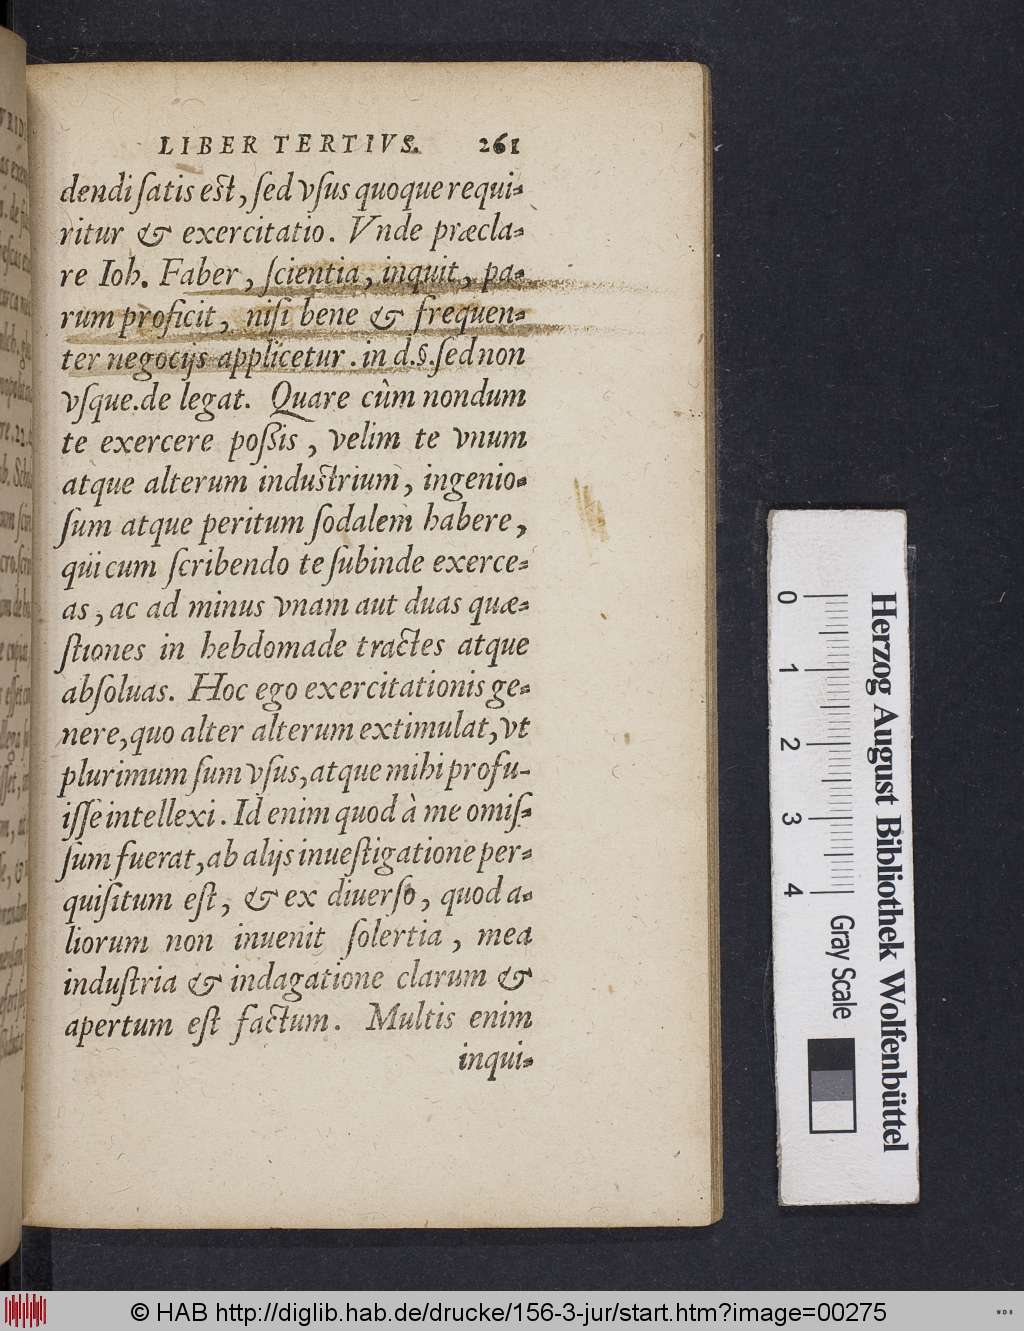 LIBER TERTIVS. 261
dendi ſatis eſt, ſed vſus quoque requi-
ritur & exercitatio. Vnde præcla-
re Ioh. Faber, ſcientia, inquit, pa-
rum proficit, niſi bene & frequen-
ter negocijs applicetur. in d.§.ſed non
vſque.de legat. Quare cûm nondum
te exercere poſsis, velim te vnum
atque alterum induſtrium, ingenio-
ſum atque peritum ſodalem habere,
qui cum ſcribendo te ſubinde exerce-
as, ac ad minus vnam aut duas quæ-
ſtiones in hebdomade tractes atque
abſoluas. Hoc ego exercitationis ge-
nere, quo alter alterum extimulat, vt
plurimum ſum vſus, atque mihi profu-
iſſe intellexi. Id enim quod à me omiſ-
ſum fuerat, ab alijs inueſtigatione per-
quiſitum eſt, & ex diuerſo, quod a-
liorum non inuenit ſolertia, mea
induſtria & indagatione clarum &
apertum eſt factum. Multis enim
inqui-
Herzog August Bibliothek Wolfenbüttel
0 1 2 3 4 Gray Scale
© HAB http://diglib.hab.de/drucke/156-3-jur/start.htm?image=00275